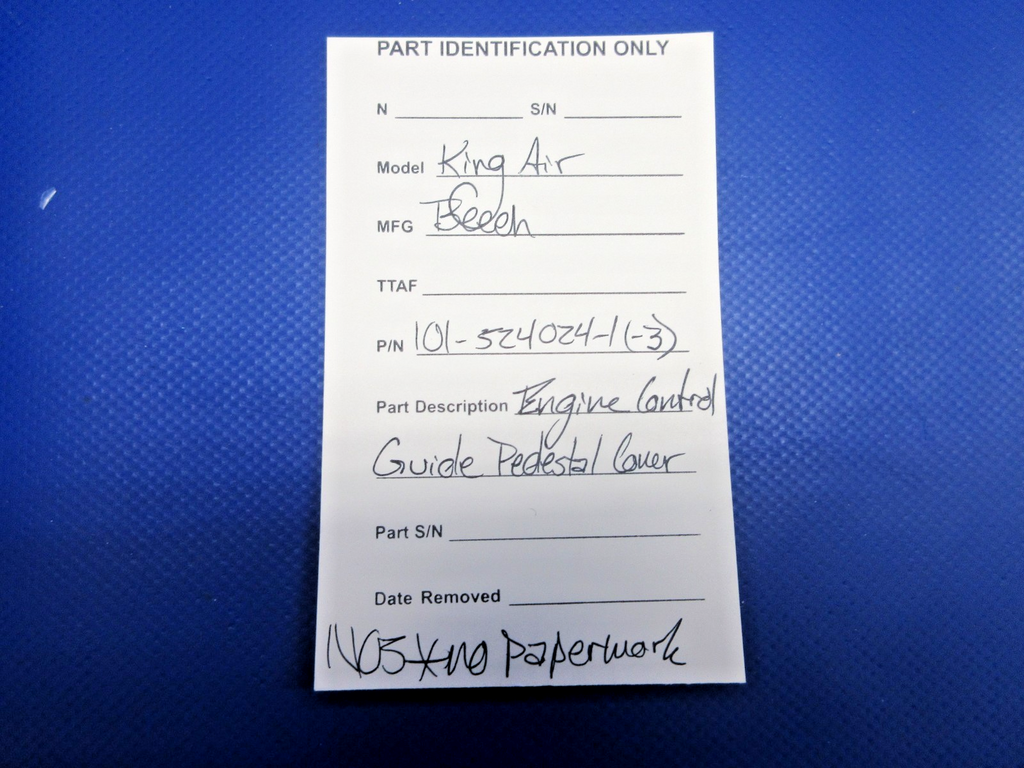 PART IDENTIFICATION ONLY
N S/N
Model King Air
MFG Beech
TTAF
P/N 101-524024-1 (-3)
Part Description Engine Control
Guide Pedestal Cover
Part S/N
Date Removed
NOS *no paperwork